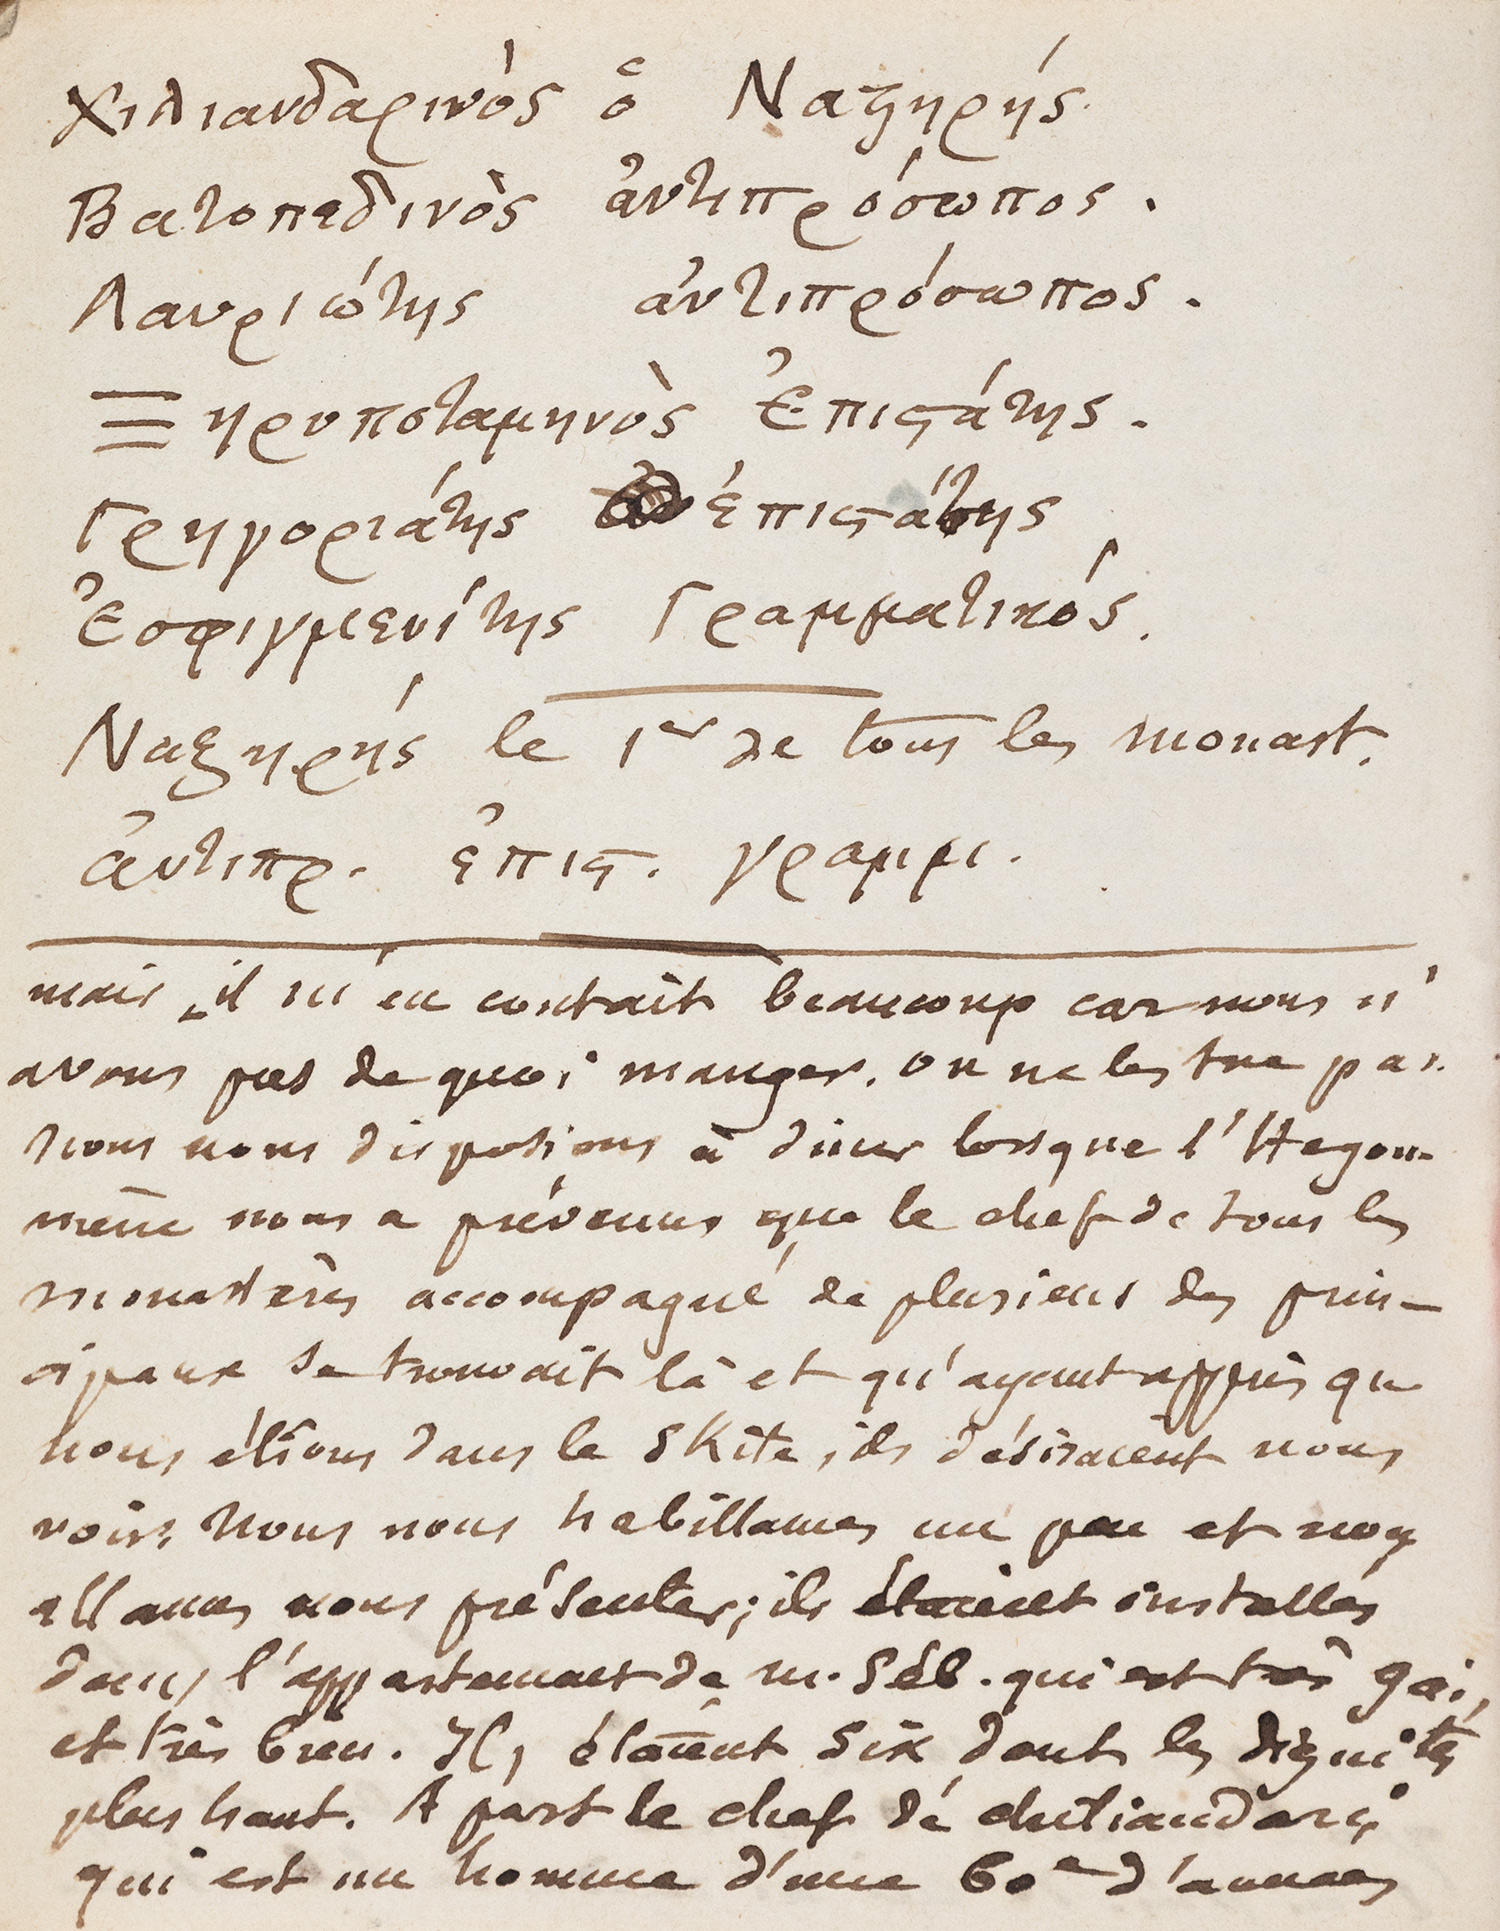 Χιλιανδαρινὸς ὁ Ναζηρής.
Βατοπεδινὸς ἀντιπρόσωπος.
Λαυριώτης ἀντιπρόσωπος.
Ξηρυποταμηνὸς Ἐπιςάτης.
Γρηγοριάτης ἐπιςάτης
Ἐσφιγμενίτης Γραμματικός.
Ναζηρής le 1er de tous les monast.
ἀντιπρ. ἐπις. γραμμ.
mais il m'en coutait beaucoup car nous n'
avons pas de quoi manger. On ne les tue pas.
Nous nous disposions à diner lorsque l'Hegou-
mène nous a prévenus que le chef de tous les
monastères accompagné de plusieurs des prin-
cipaux se trouvait là et qu'ayant appris que
nous étions dans le Skite, ils désiraient nous
voir. Nous nous habillames un peu et nous
allames nous présenter; ils étaient installés
dans l'appartement de m. Séb. qui est très gai,
et très bien. Ils étaient six dont les dignités
plus haut. A part le chef de chiliandari
qui est un homme d'une 60e d'annees